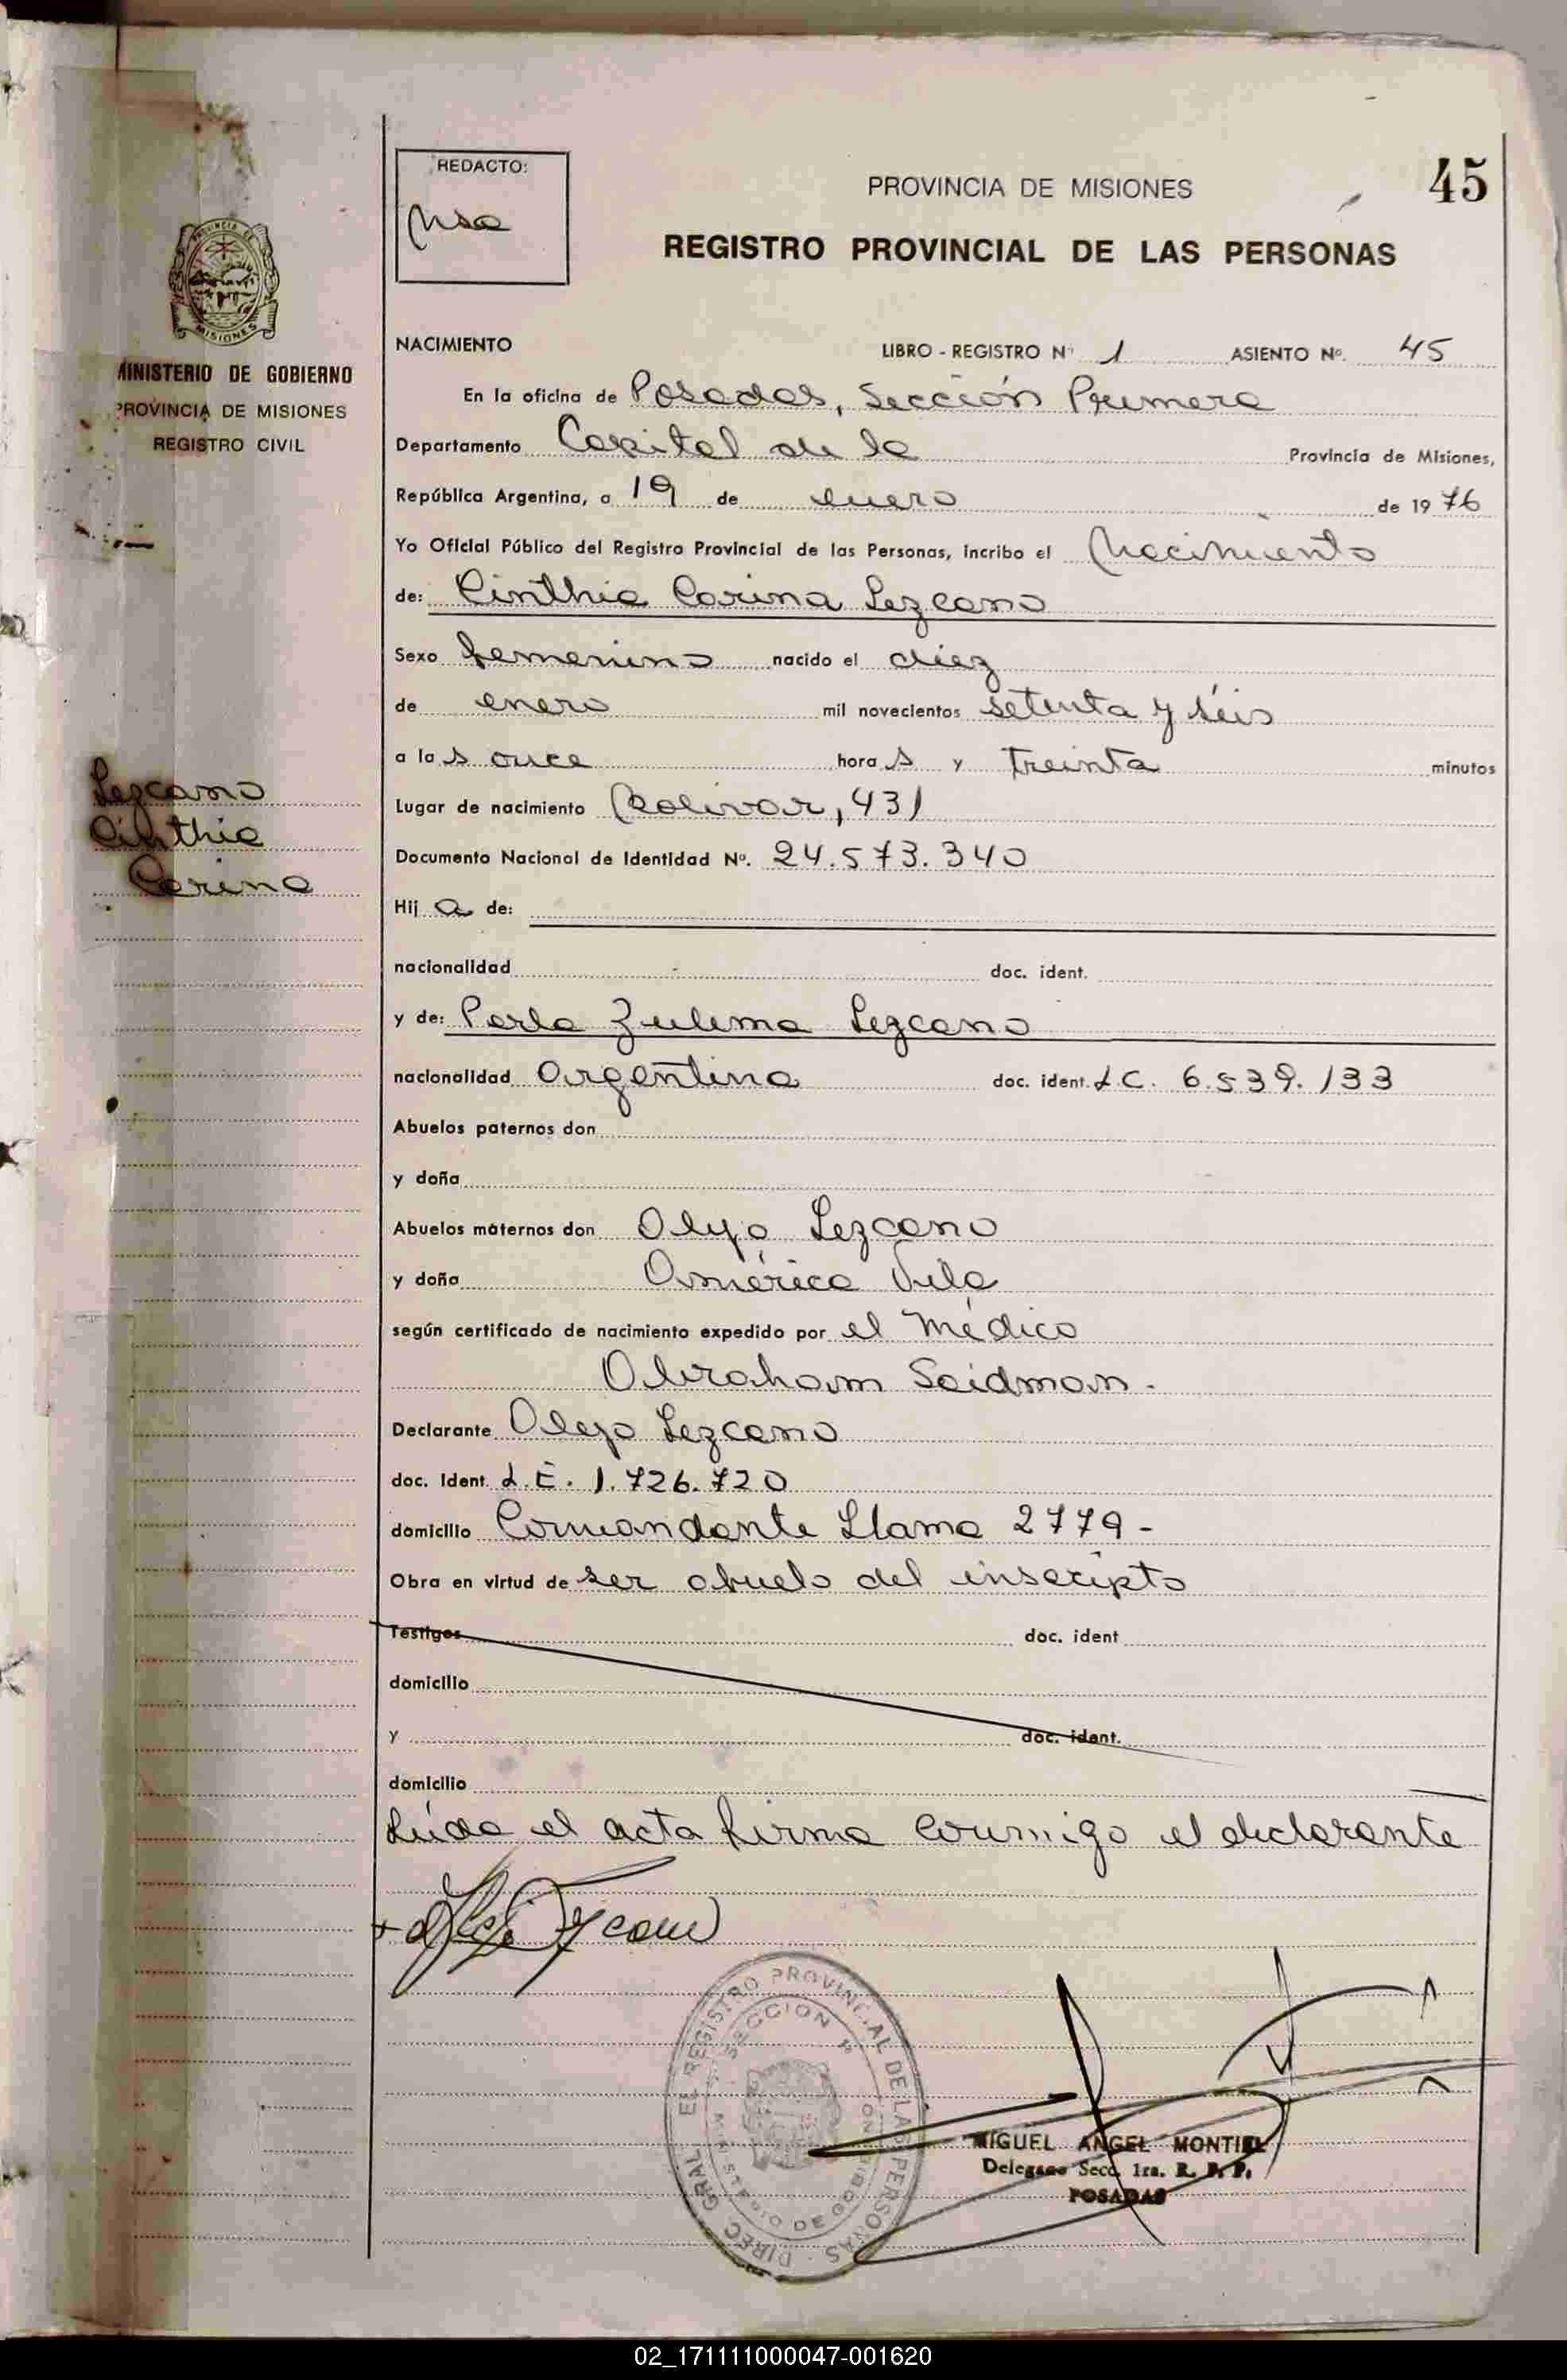 REDACTO:
PROVINCIA DE MISIONES
45
REGISTRO PROVINCIAL DE LAS PERSONAS
PROVINCIA DE
MISIONES
MINISTERIO DE GOBIERNO
PROVINCIA DE MISIONES
REGISTRO CIVIL
Lezcano
Cinthia
Carina
NACIMIENTO LIBRO - REGISTRO Nº 1 ASIENTO Nº. 45
En la oficina de Posadas, Sección Primera
Departamento Capital de la Provincia de Misiones,
República Argentina, a 19 de enero de 1976
Yo Oficial Público del Registro Provincial de las Personas, incribo el Nacimiento
de: Cinthia Carina Lezcano
Sexo femenino nacido el diez
de enero mil novecientos setenta y séis
a las once horas y treinta minutos
Lugar de nacimiento Bolivar, 431
Documento Nacional de Identidad Nº. 24.573.340
Hija de:
nacionalidad doc. ident.
y de: Perla Zulema Lezcano
nacionalidad Argentina doc. ident. L.C. 6.539.133
Abuelos paternos don
y doña
Abuelos maternos don Alejo Lezcano
y doña América Vila
según certificado de nacimiento expedido por el Médico
Abraham Saidman.
Declarante Alejo Lezcano
doc. Ident. L.E. 1.726.720
domicilio Comandante Llama 2779-
Obra en virtud de ser abuelo del inscripto
Testigos doc. ident
domicilio
y doc. ident.
domicilio
Leída el acta firma conmigo el declarante
DIREC. GRAL. EL REGISTRO PROVINCIAL DE LAS PERSONAS
SECCION 1ª
MINISTERIO DE GOBIERNO
MIGUEL ANGEL MONTIEL
Delegado Secc. 1ra. R. P. P.
POSADAS
02_171111000047-001620